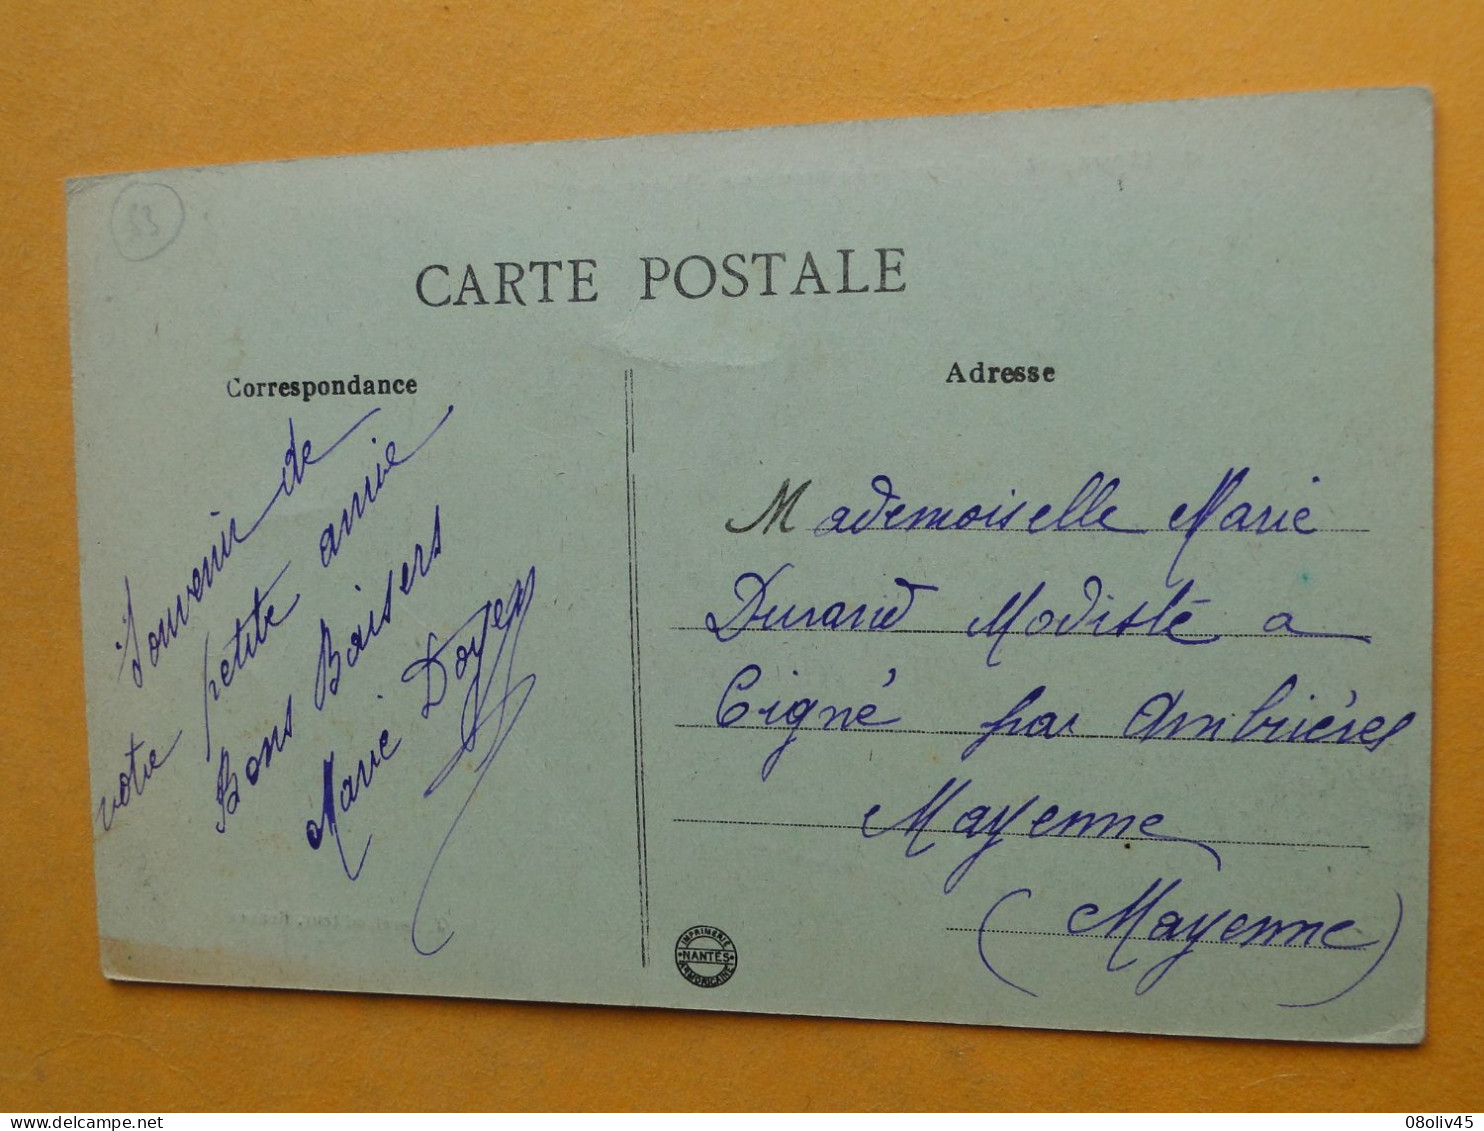 53
CARTE POSTALE
Correspondance
Souvenir de
votre petite amie
Bons Baisers
Marie Doyen
Adresse
Mademoiselle Marie
Durand Modiste a
Cigné par Ambriéres
Mayenne
(Mayenne)
IMPRIMERIE
NANTES
ARMORICAINE
08oliv45